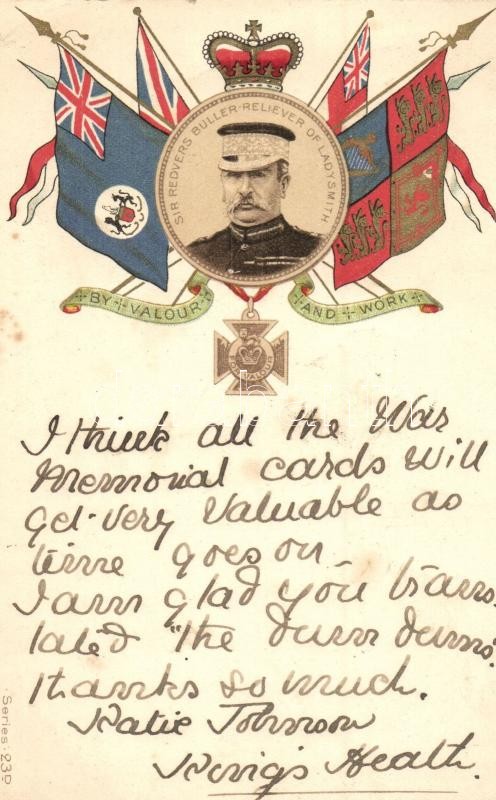 SIR REDVERS BULLER-RELIEVER OF LADYSMITH
BY VALOUR
AND WORK
FOR VALOUR
I think all the War
Memorial cards will
get very valuable as
time goes on
I am glad you trans
lated "the dum dums".
thanks so much.
Katie Johnson
King's Heath.
Series: 23D